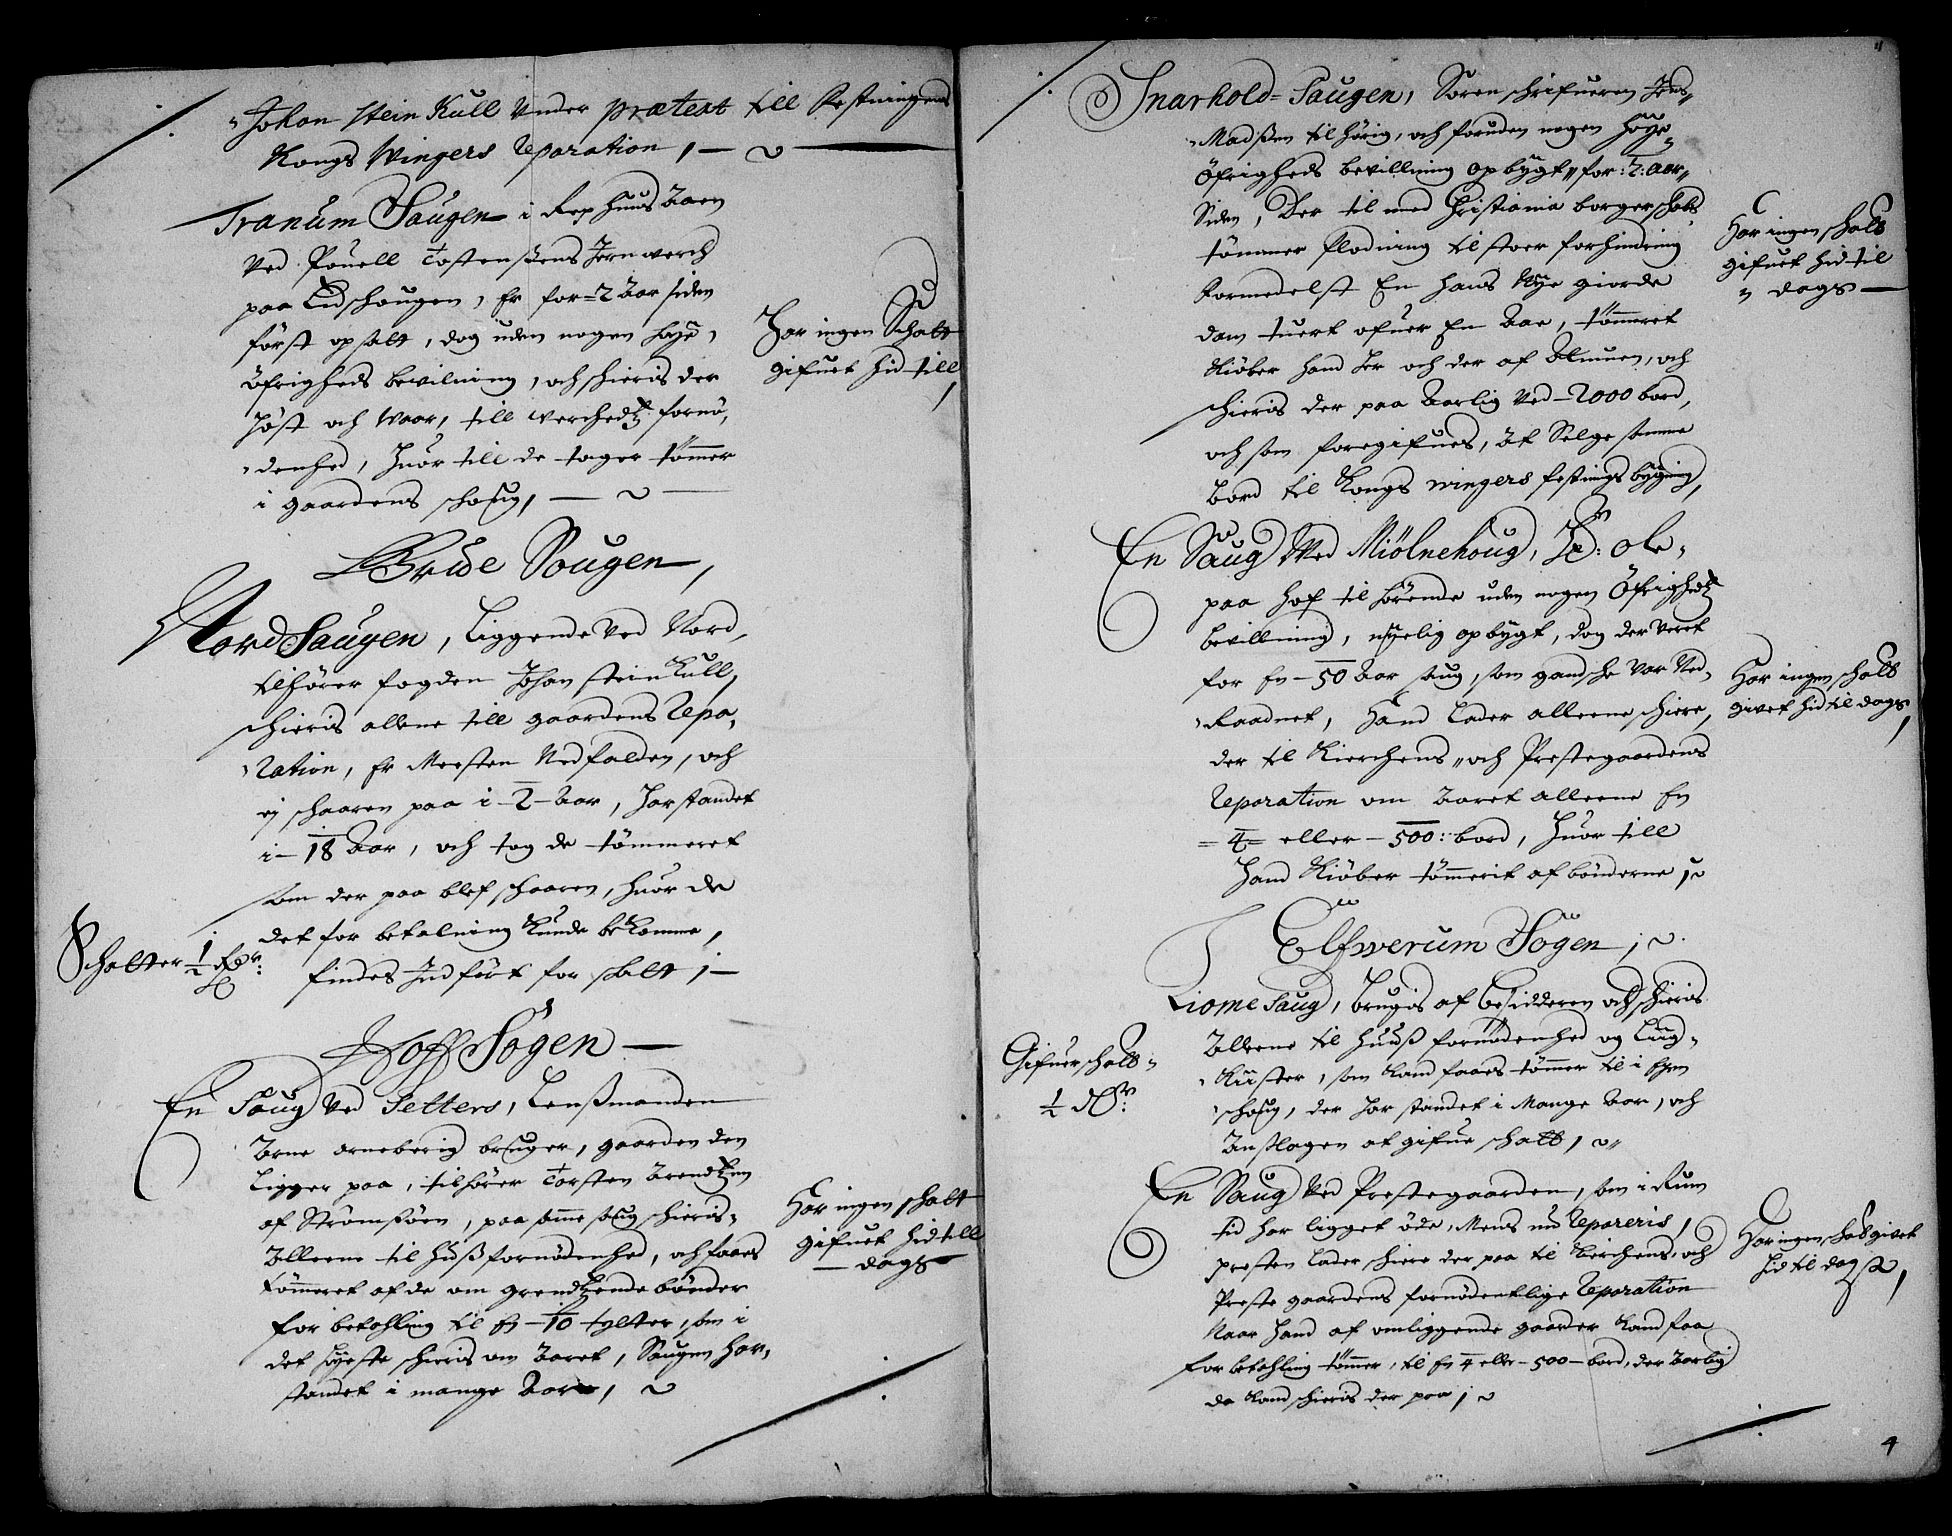 Johan Stein Kull under prætext till Festningens
Kongs Wingers Reparation, —
Tranum Saugen i Rephuus Aaen
ved Pouell Tostensens Jernwerch
paa Eidschougen, Er for 2 Aar siden
först opsatt, dog uden nogen höye,
Öfrigheds bevilning, och schieris der
höst och Waar, till werchedtz fornö,
denhed, huor till de tager tömmer
i gaardens schoug, —
Har ingen Schatt
gifuet hid till
Sougen,
Nord Saugen, Liggende ved Nord,
tilhörer fogden Johan Stein Kull,
schieris allene till gaardens Repa,
ration, Er Meesten Nedfalden, och
ej schaaren paa i 2 Aar, har standet
i 18 Aar, och tog de tömmeret
som der paa blef schaaren, huor de
det for betalning kunde bekomme,
Schatter ½ Rdr:
findes Indfört for skatt ; —
Hoff Sogen —
En Saug ved Setters, Lensmanden
Arne Arneberig bruger, gaarden den
Ligger paa, tilhörer Torsten Arendtzen
af Strömsöen, paa samme saug schieris
Alleene til huus fornödenhed, och faaes
tömmeret af de om grendtzende bönder
for betahling til En 10 tylter, som i
det höyeste schieris om Aaret, Saugen har,
standet i mange Aar,
Har ingen schatt
gifuet hid till
dags
Snarhold-Saugen, Sorenschrifueren Jens
Madsen tilhörig, och foruden nogen höye
Öfrigheds bevillning opbygt for: 2: aar
siden, Der til med Christiania borgerschabs
tömmer flodning til stoer forhindring
formedelst En hans Nye giorde
dam tuert ofuer En Aae, tömmeret
Kiöber hand her och der af Almuen, och
schieris der paa Aarlig ved 2000 bord,
och som foregifues, at Selge samme
bord til Kongs wingers festnings bÿgning,
Har ingen schatt
gifuet hid til
dags —
En Saug Ved Miölnehoug, Hr: Ole
paa Hof tilhörende uden nogen Öfrighedtz
bevillning, nyelig opbygt, dog der veret
for En 50 Aar saug, som gandsche var Ned,
Raadnet, Hand lader alleene schiere,
der til Kierchens och Prestegaardens
Reparation om Aaret alleene En
4 eller 500: bord, huor till
Hand Kiöber tömmerit af bönderne,
Har ingen schatt
givet hid til dags,
Elfwerum Sogen ;
Liome Saug, brugis af besidderen och schieris
Alleene til huuß fornödenhed og Liig,
Kiister, som kand faaes tömmer til i Egen
schoug, der har standet i Mange Aar, och
Anslagen at gifue schatt,
Gifuer schatt
½ dlr:
En Saug ved Prestegaarden, som i Rum
tid har ligget öde, Mens nu Repareris,
presten lader schiere der paa til Kierchens och
Preste gaardens fornödentlige Reparation
Naar hand af omliggende gaarder kand faa
for betahling tömmer, til En 4 eller 500 bord, der Aarlig
da kand schieris der paa ;
Har ingen schatt givet
hid til dags,
4